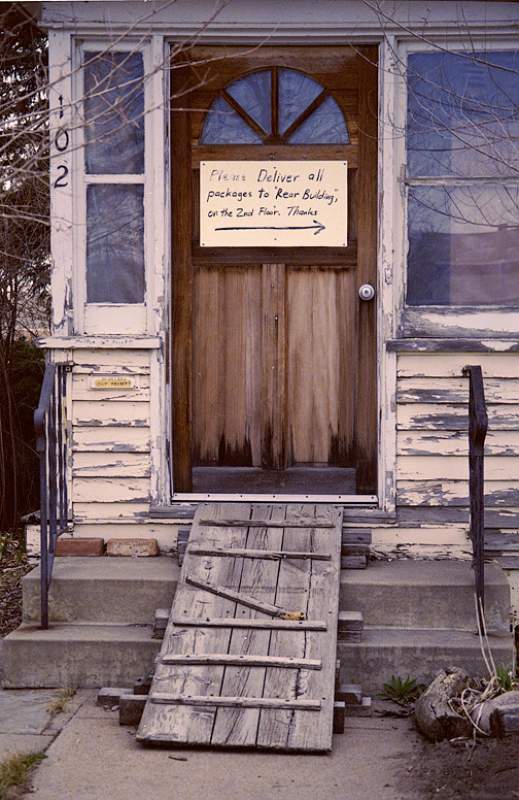 102
Please Deliver all
packages to "Rear Building",
on the 2nd Floor. Thanks